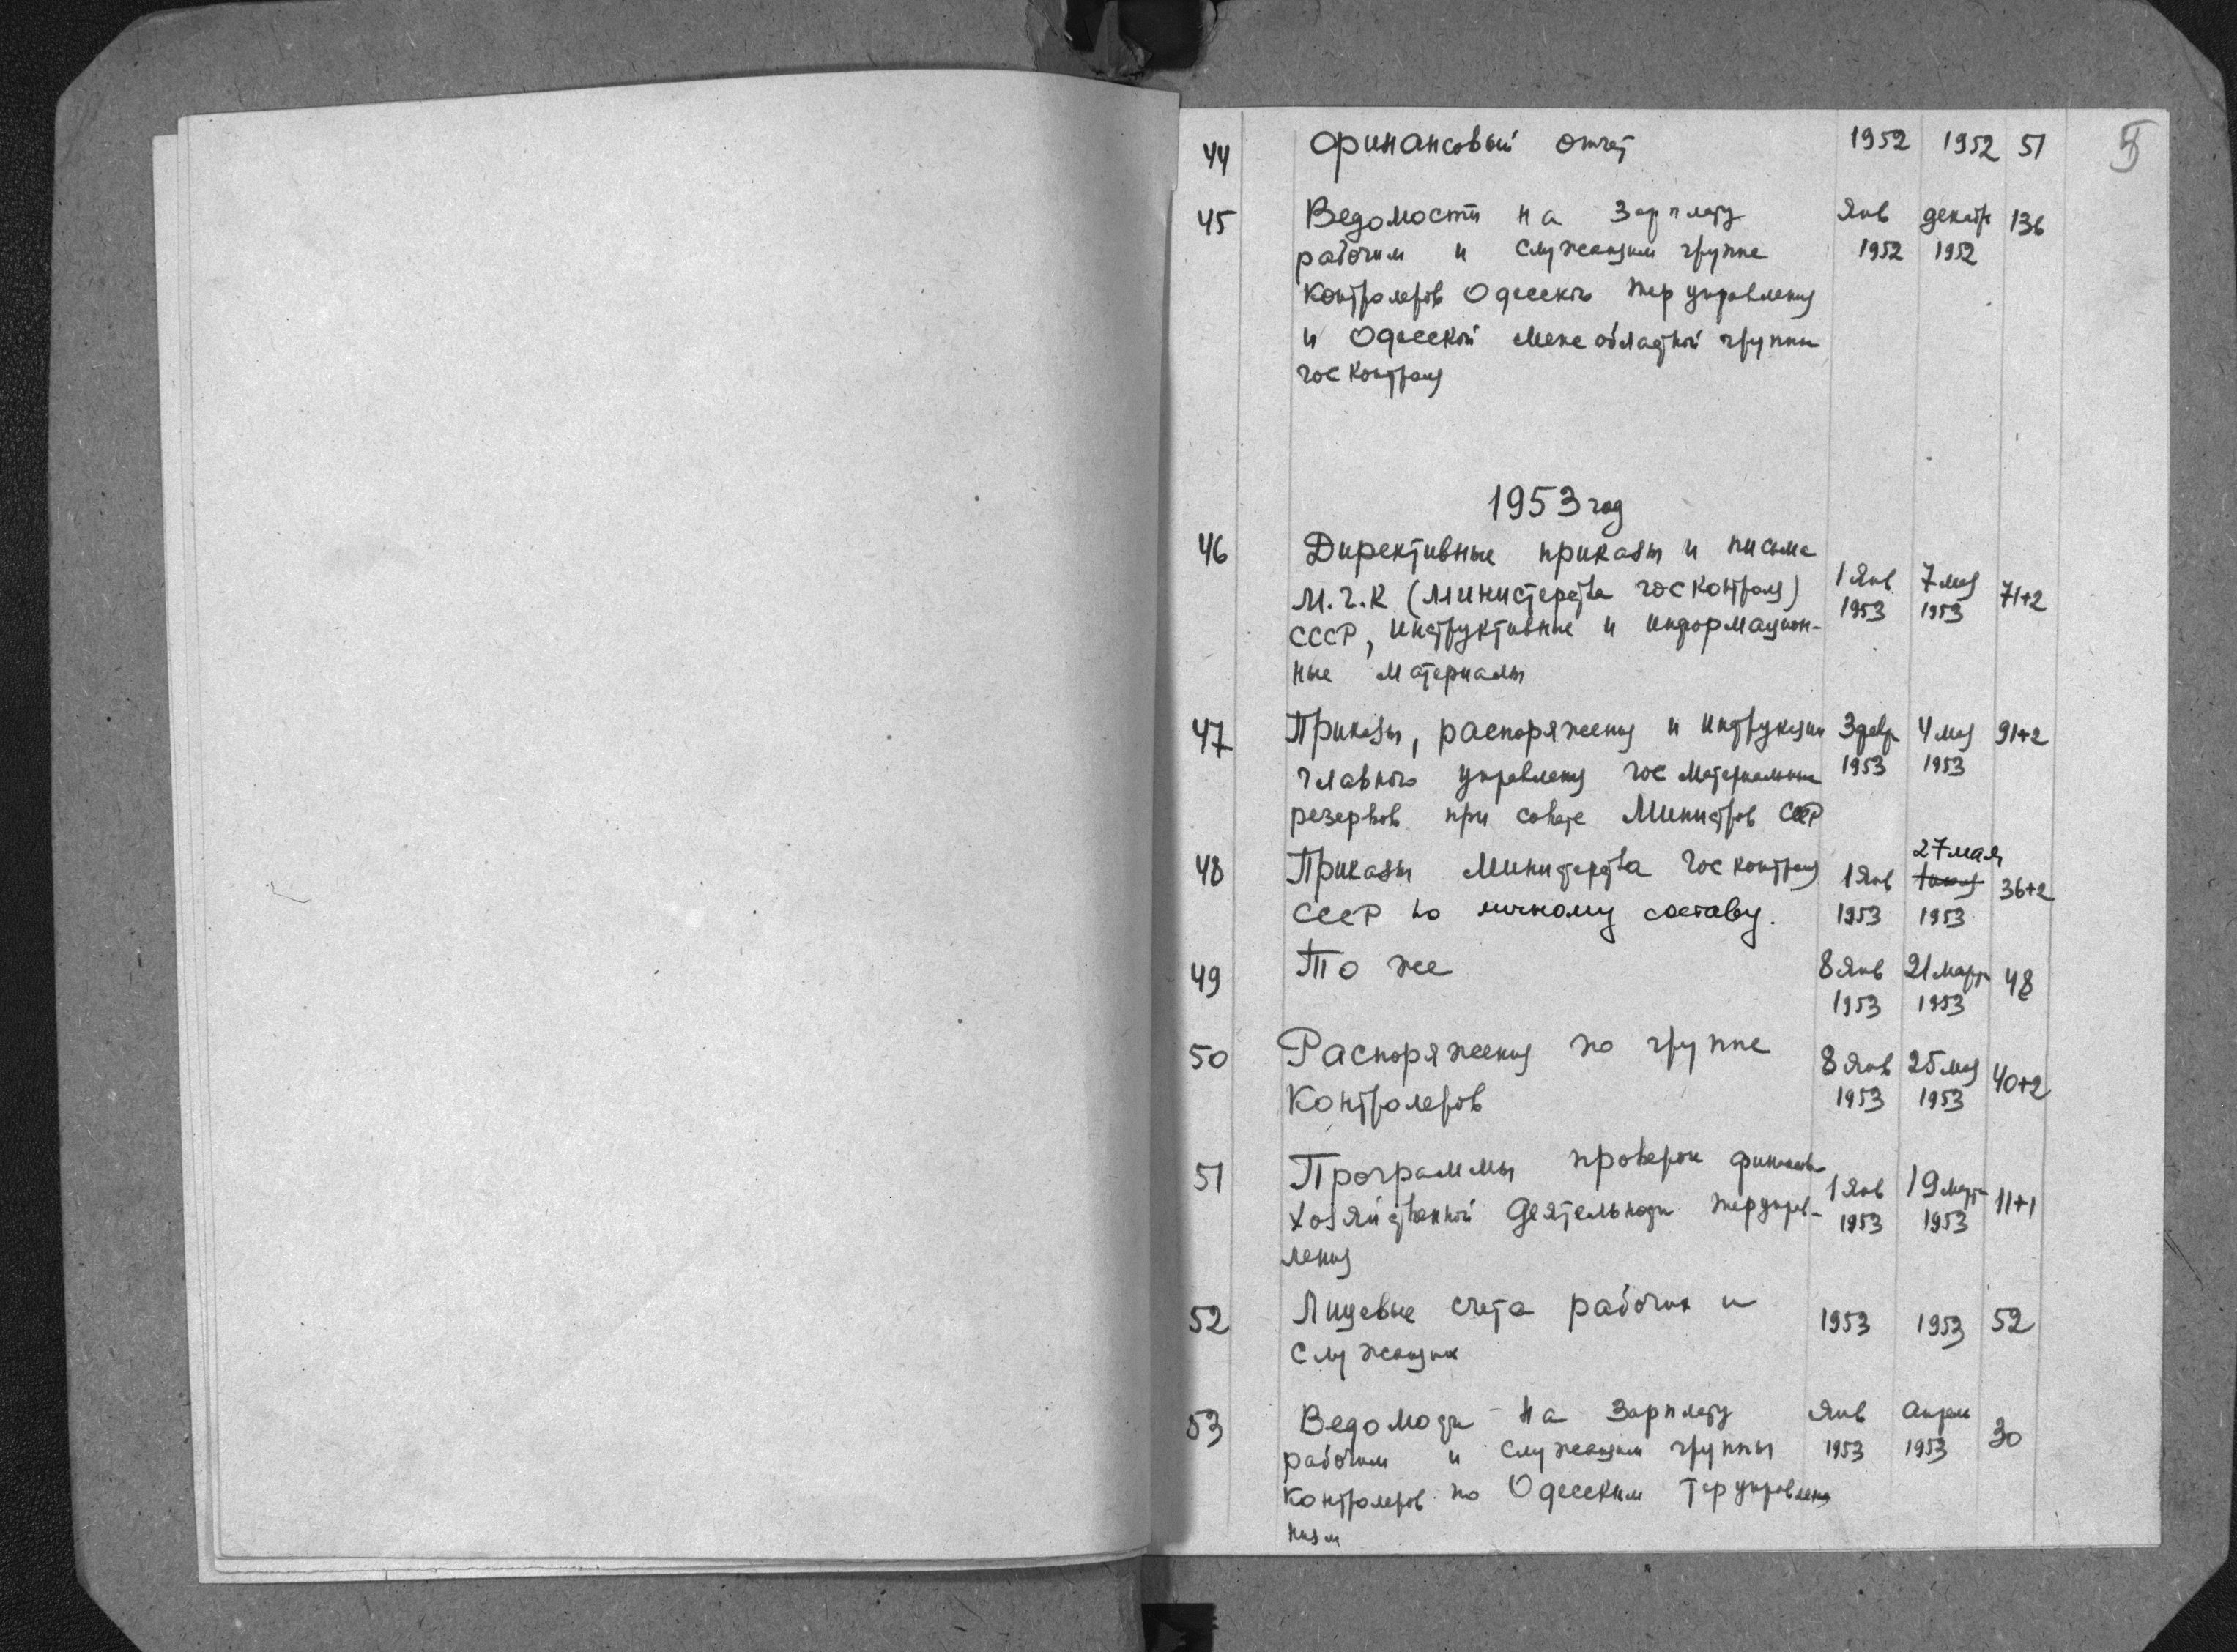 5
44 Финансовый отчет 1952 1952 51
45 Ведомости на зарплату Янв декабр 136
рабочим и служащим группе 1952 1952
контролеров Одесского теруправления
и Одесской межобластной группы
госконтроля
1953 год
46 Директивные приказы и письма
М.Г.К (министерства госконтроля) 1 Янв 7 мая 71+2
СССР, инструктивные и информацион- 1953 1953
ные материалы
47 Приказы, распоряжения и инструкции 3 февр 4 мая 91+2
главного управления гос материальных 1953 1953
резервов при совете Министров СССР
27 мая
48 Приказы Министерства Госконтроля 1 Янв 36+2
СССР по личному составу. 1953 1953
49 То же 8 Янв 21 марта 48
1953 1953
50 Распоряжения по группе 8 Янв 25 мая 40+2
Контролеров 1953 1953
51 Программы проверок финансов-
хозяйственной деятельности теруправ- 1 Янв 19 марта 11+1
ления 1953 1953
52 Лицевые счета рабочих и 1953 1953 52
служащих
53 Ведомости на зарплату Янв апрель 30
рабочим и служащим группы 1953 1953
контролеров по Одесским терувравле
ниям